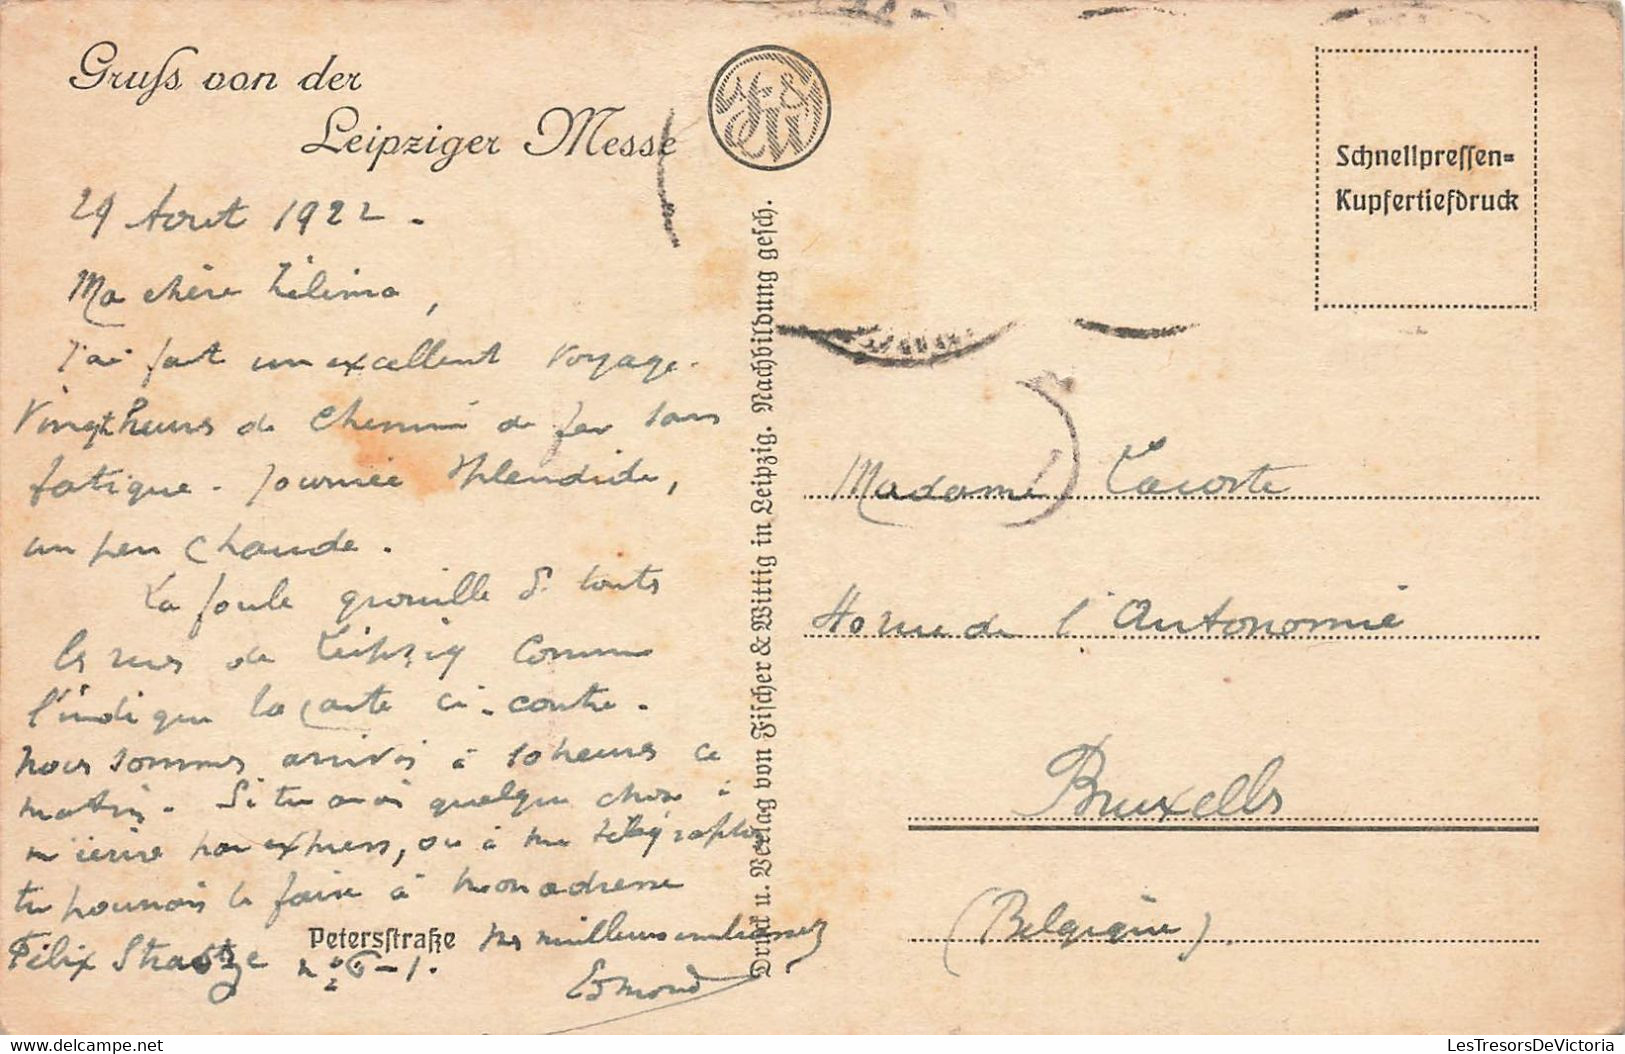 Gruſs von der
Leipziger Messe
29 Aout 1922.
Ma chère Zélima,
J'ai fait un excellent voyage.
Vingt heures de chemin de fer sans
fatigue. Journée splendide,
un peu chaude.
La foule grouille ds touts
les rues de Leipzig comme
l'indique la carte ci-contre.
Nous sommes arrivés à 10 heures ce
matin. Si tu avais quelque chose à
m'écrire par express, ou à me télégraphier
tu pourrais le faire à mon adresse
Felix Strasse
n° 6-1.
Mes meilleurs embrassez
Edmond
Petersſtraße
Druck u. Verlag von Fiſcher & Wittig in Leipzig. Nachbildung geſch.
F & W
Schnellpreſſen=
Kupfertiefdruck
Madame Lacoste
rue de l'Autonomie
Bruxelles
(Belgique).
LesTresorsDeVictoria
delcampe.net